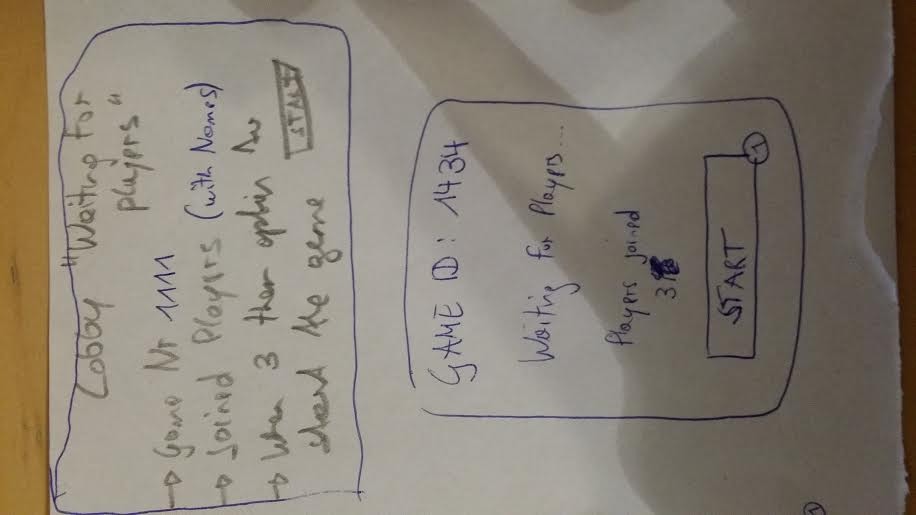 Lobby "Waiting for
players"
→ Game Nr 1111
→ Joined Players (with Names)
→ When 3 then option to
start the game START
GAME ID: 1434
Waiting for Players...
Players joined
3
START
1
1